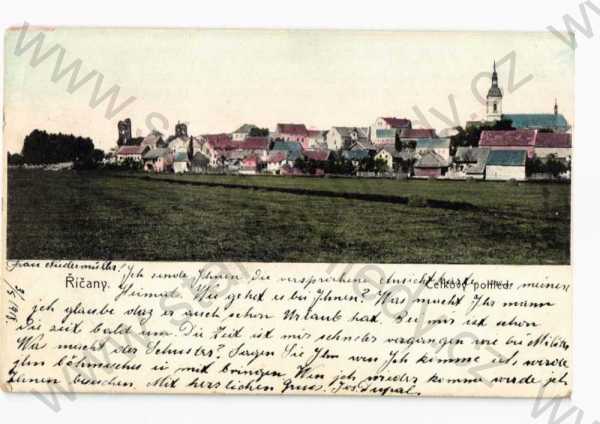 Frau Niedermüller!
Říčany. Celkový pohled.
Ich sende Ihnen die versprochene Ansichtkarte meinen
Heimat. Wie geht es bei Ihnen? Was macht Ihr mann
ich glaube daz er auch schon Urlaub hat. Bei mir ist schon
die zeit bald um. Die Zeit ist mir schneler vergangen wie bei Militer
Was macht der Schuster? Sagen Sie Ihm wen Ich komme ich werde
ihm böhmisches mit bringen. Wen ich wieder komme werde ich
Ihnen besuchen. Mit herzlichen Grus. Jos.